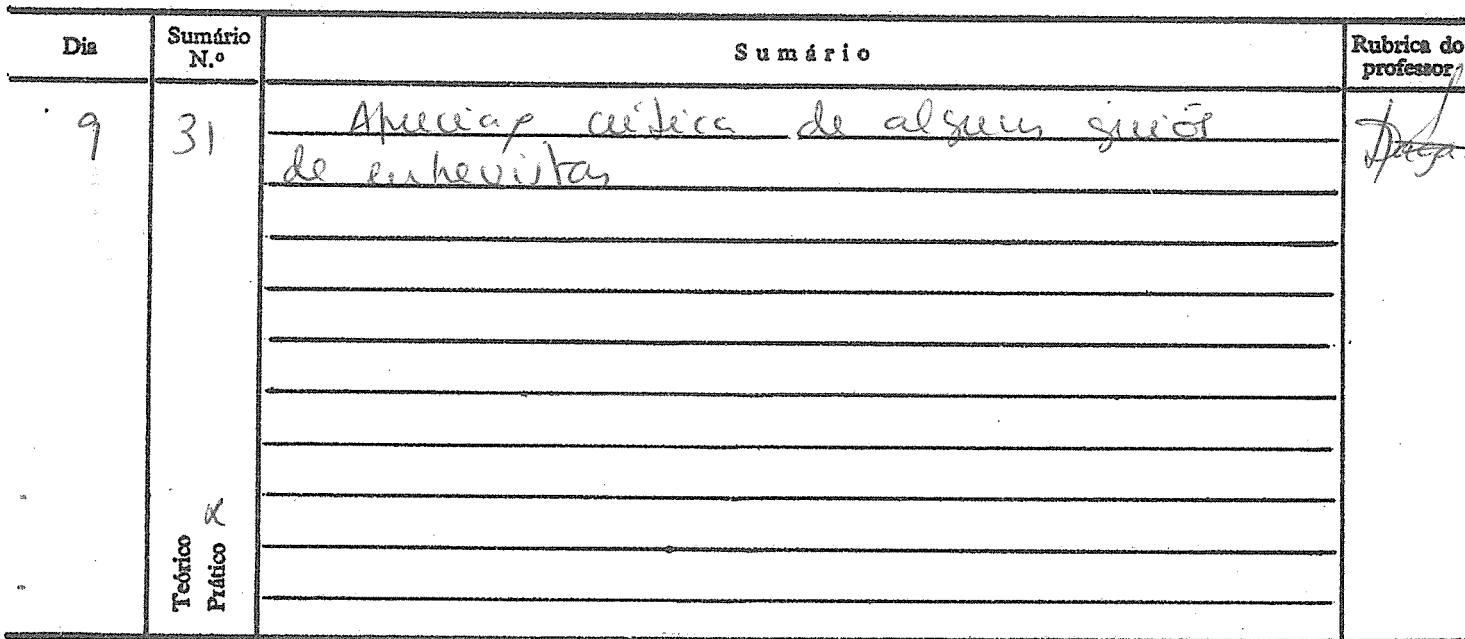 Dia
Sumário N.º
Sumário
Rubrica do professor
9
31
Apreciaç crítica de alguns guiões
de entrevistas
Teórico
Prático x